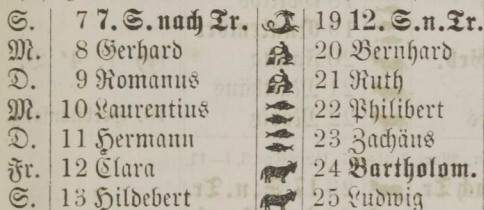 S. 7 7. S. nach Tr. 19 12. S. n. Tr.
M. 8 Gerhard 20 Bernhard
D. 9 Romanus 21 Ruth
M. 10 Laurentius 22 Philibert
D. 11 Hermann 23 Zachäus
Fr. 12 Clara 24 Bartholom.
S. 13 Hildebert 25 Ludwig